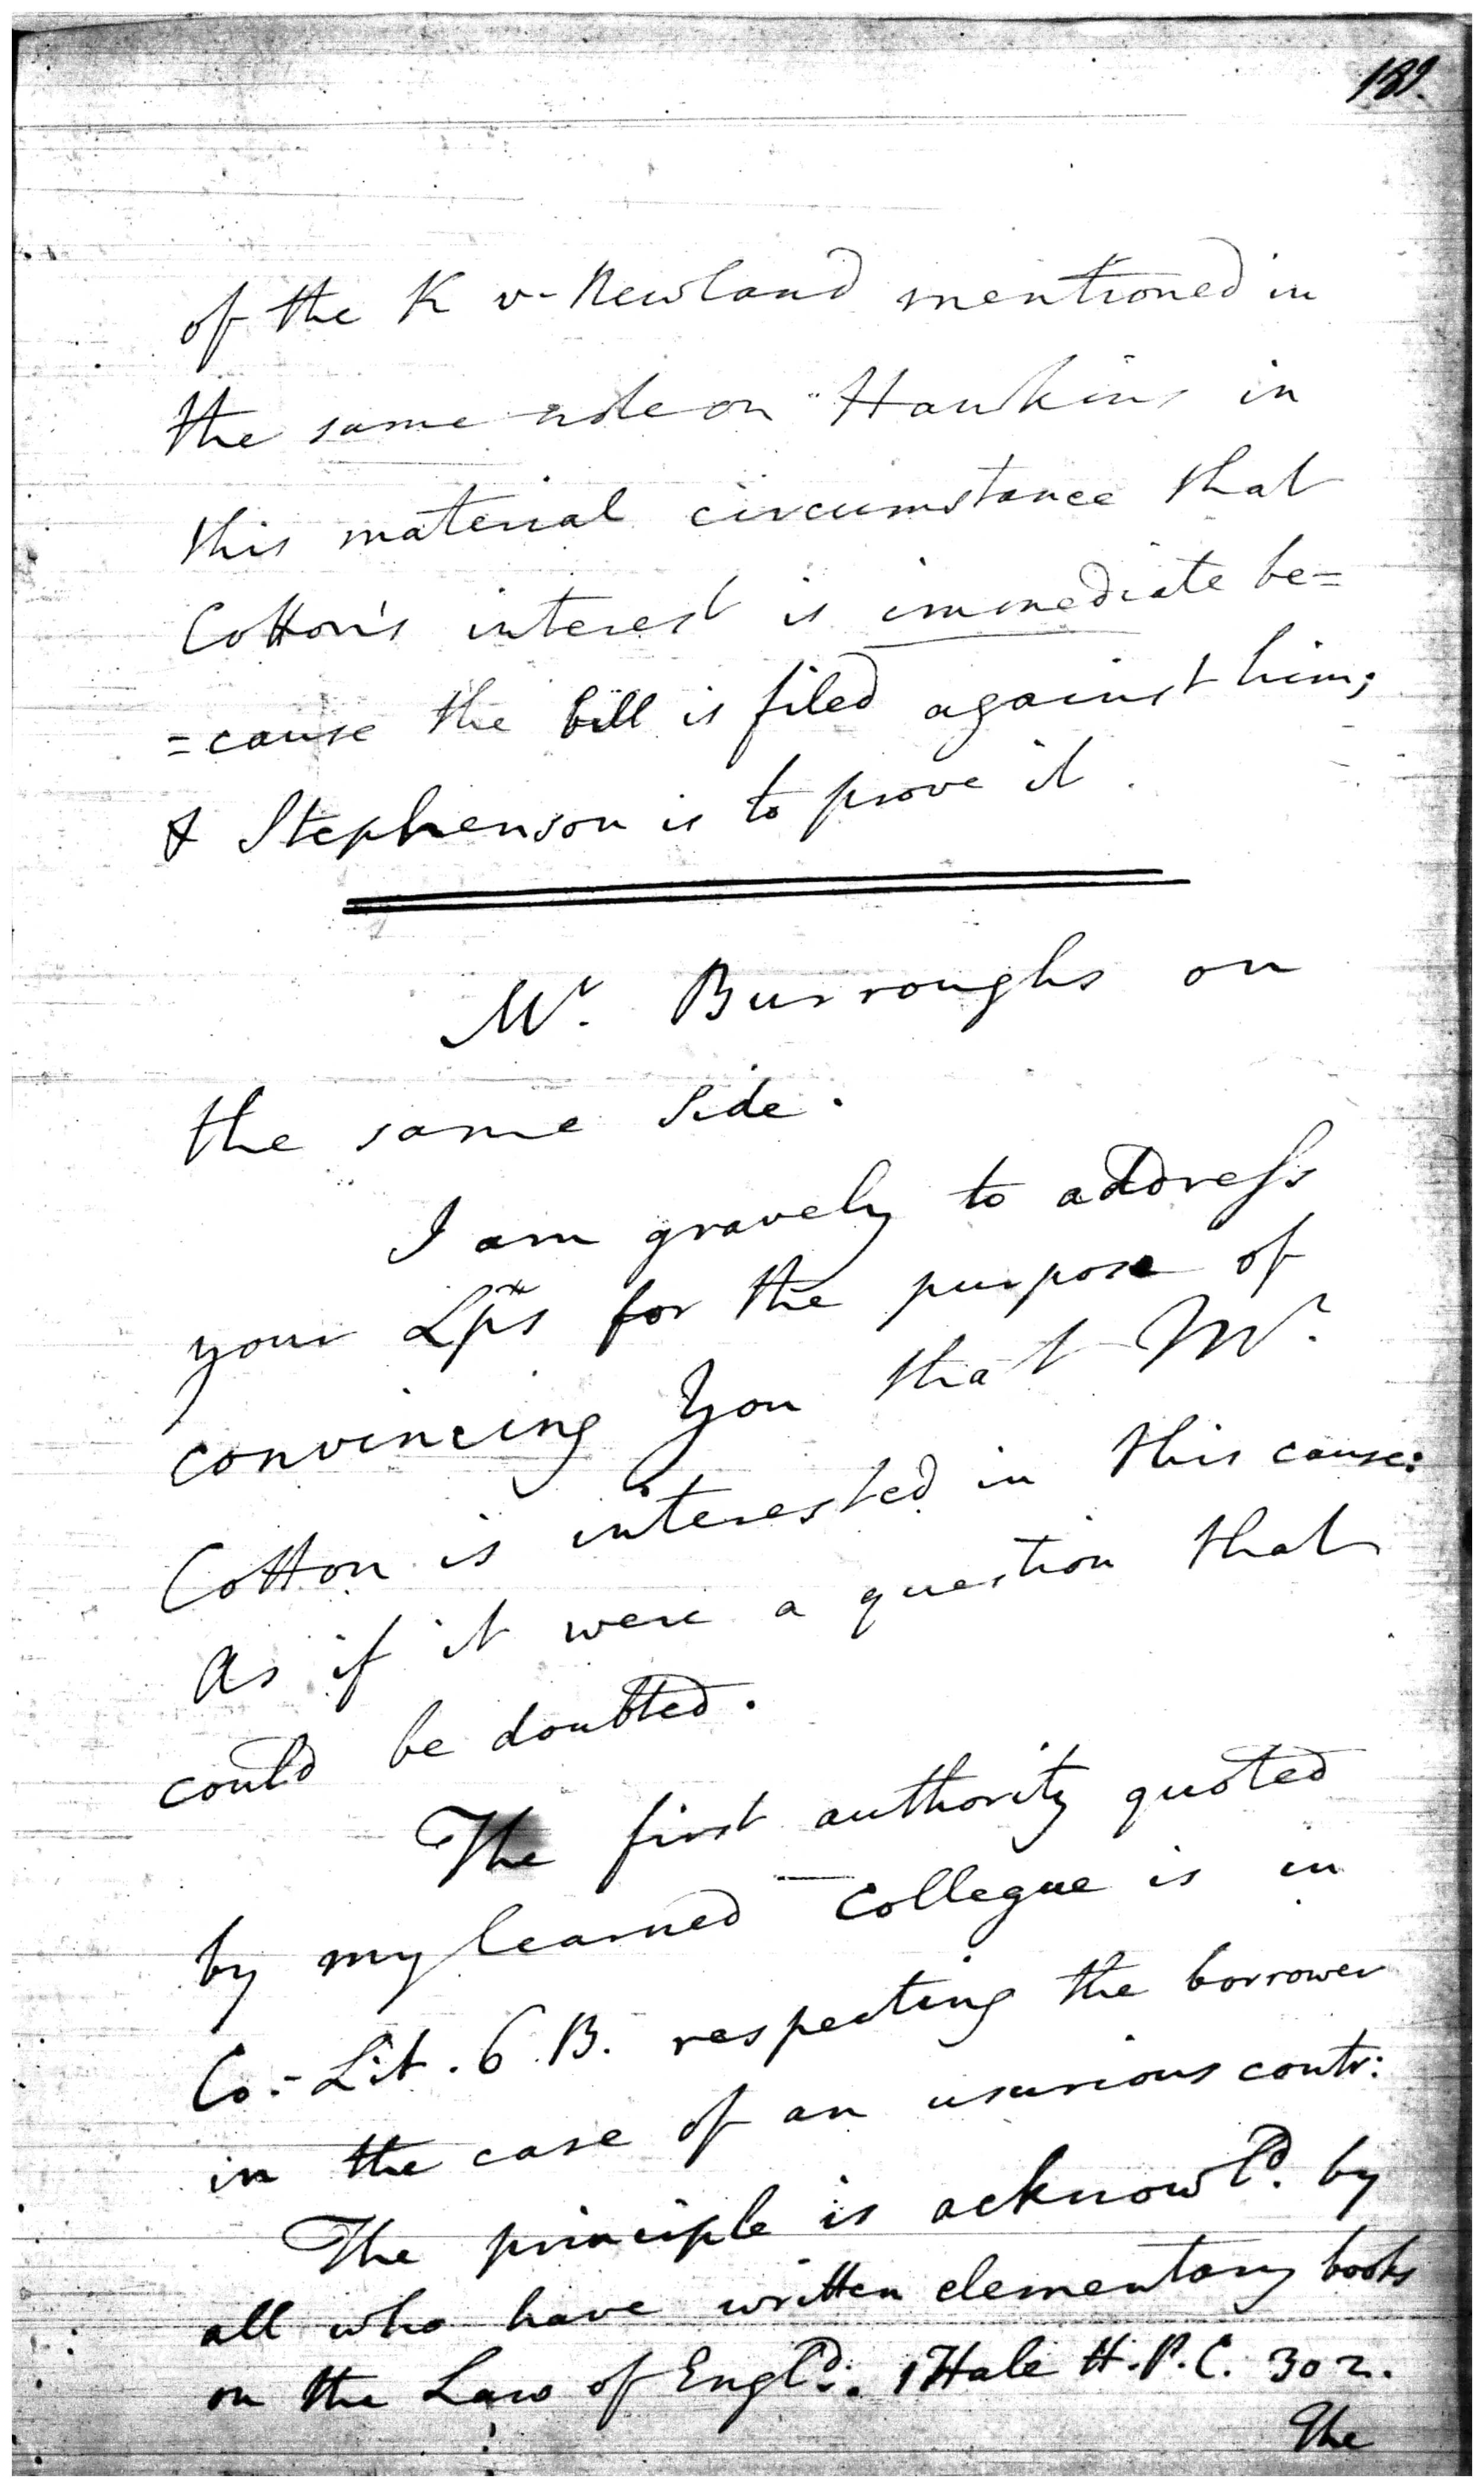 189.
of the K v. Newland mentioned in
the same note on Hawkins in
this material circumstance that
Cotton's interest is immediate be=
=cause the bill is filed against him;
& Stephenson is to prove it.
Mr. Burroughs on
the same side.
I am gravely to address
your Lps for the purpose of
convincing You that Mr.
Cotton is interested in this cause:
As if it were a question that
could be doubted.
The first authority quoted
by my learned collegue is in
Co:- Lit. 6. B. respecting the borrower
in the case of an usurious contr:
The principle is acknowld. by
all who have written elementary books
on the Law of Engld:. 1 Hale H.P.C. 302.
The